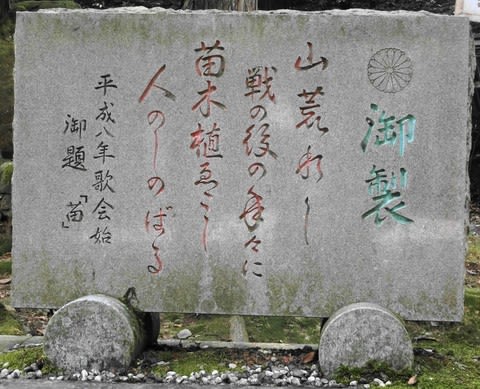 御製
山荒れし
戦の後の年々に
苗木植ゑこし
人のしのばる
平成八年歌会始
御題「苗」